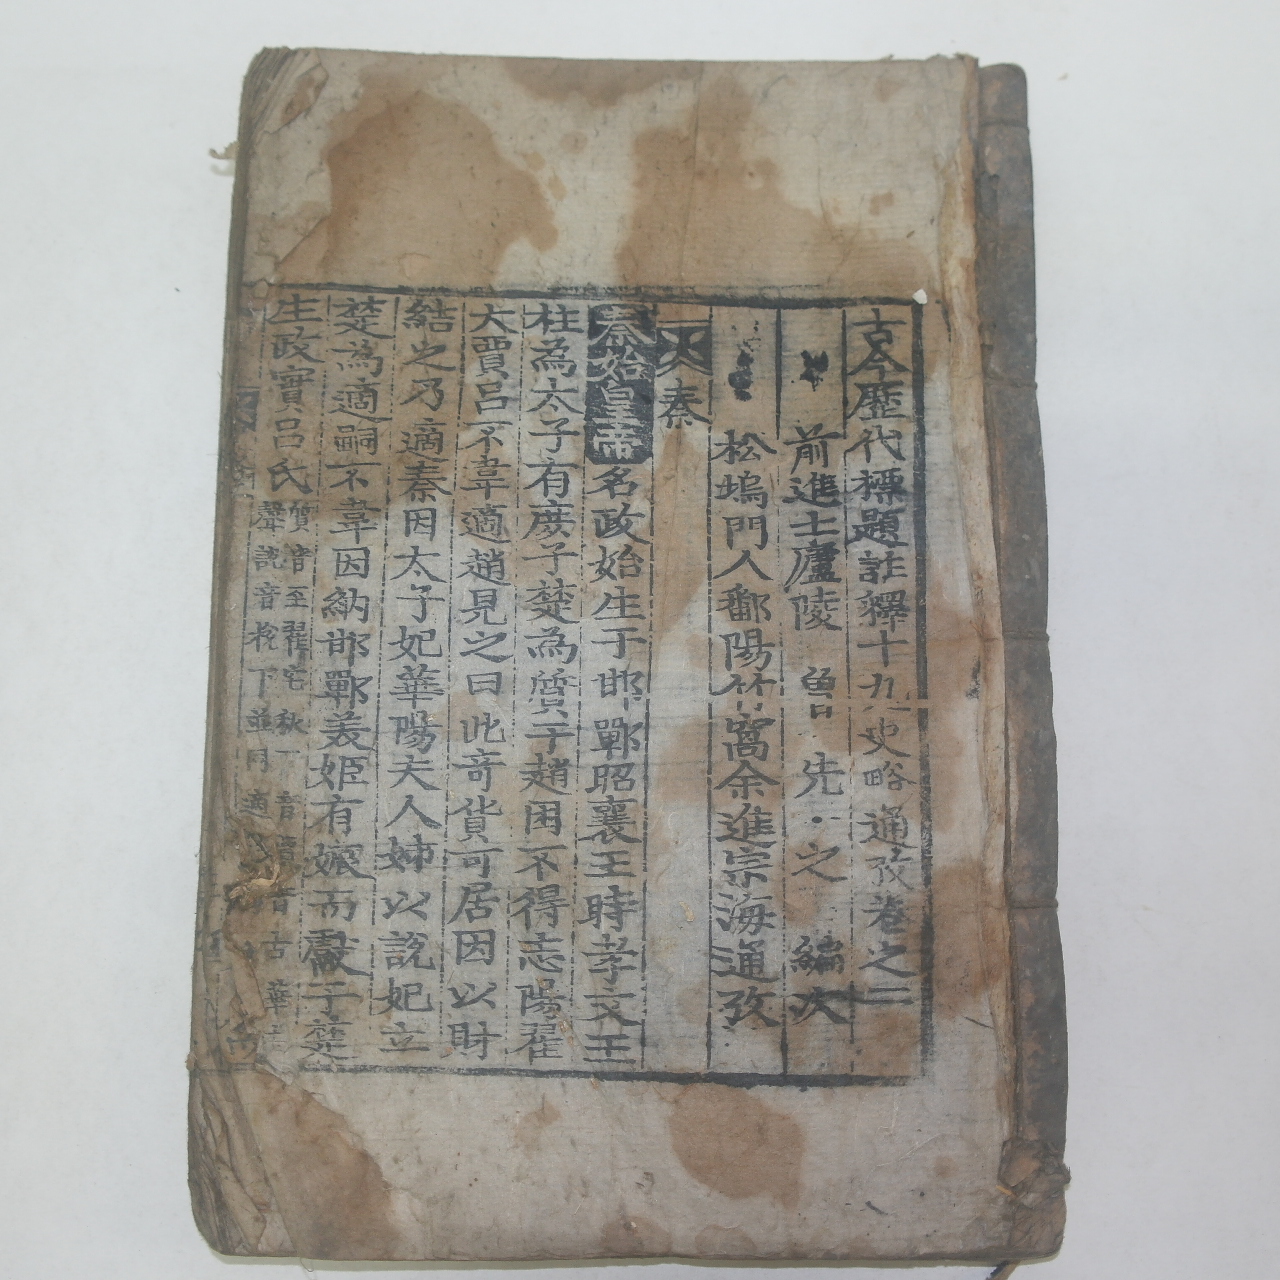 古今歷代標題註釋十九史略通攷卷之二
前進士廬陵 魯 先 之 編次
松塢門人鄱陽竹窩余進宗海通攷
秦
秦始皇帝名政始生于邯鄲昭襄王時孝文王
柱為太子有庶子楚為質于趙困不得志陽翟
大賈呂不韋適趙見之曰此奇貨可居因以財
結之乃適秦因太子妃華陽夫人姊以說妃立
楚為適嗣不韋因納邯鄲美姬有娠而獻于楚
生政實呂氏
質音至翟宅秋音音古華
聲說音稅下並同適